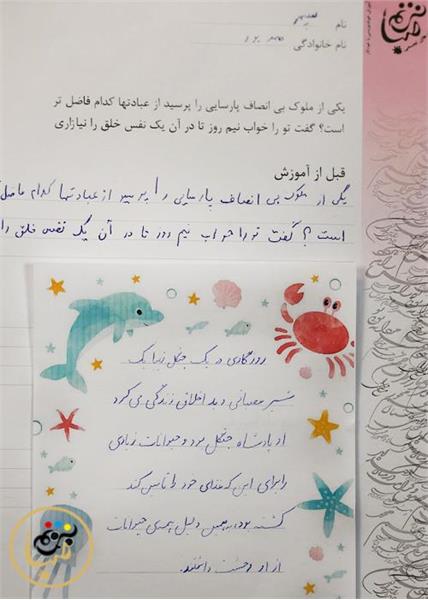 نام
نام خانوادگی
یکی از ملوک بی انصاف پارسایی را پرسید از عبادتها کدام فاضل تر
است؟ گفت تو را خواب نیم روز تا در آن یک نفس خلق را نیازاری
قبل از آموزش
یکی از ملوک بی انصاف پارسایی را پرسید از عبادتها کدام فاضل
است؟ گفت تو را خواب نیم روز تا در آن یک نفس خلق را
روزگاری در یک جنگل زیبا یک
شیر عصبانی و بد اخلاق زندگی می کرد
او پادشاه جنگل بود و حیوانات زیادی
را برای این که غذای خود را تامین کند
کشته بود، به همین دلیل همه ی حیوانات
از او وحشت داشتند.